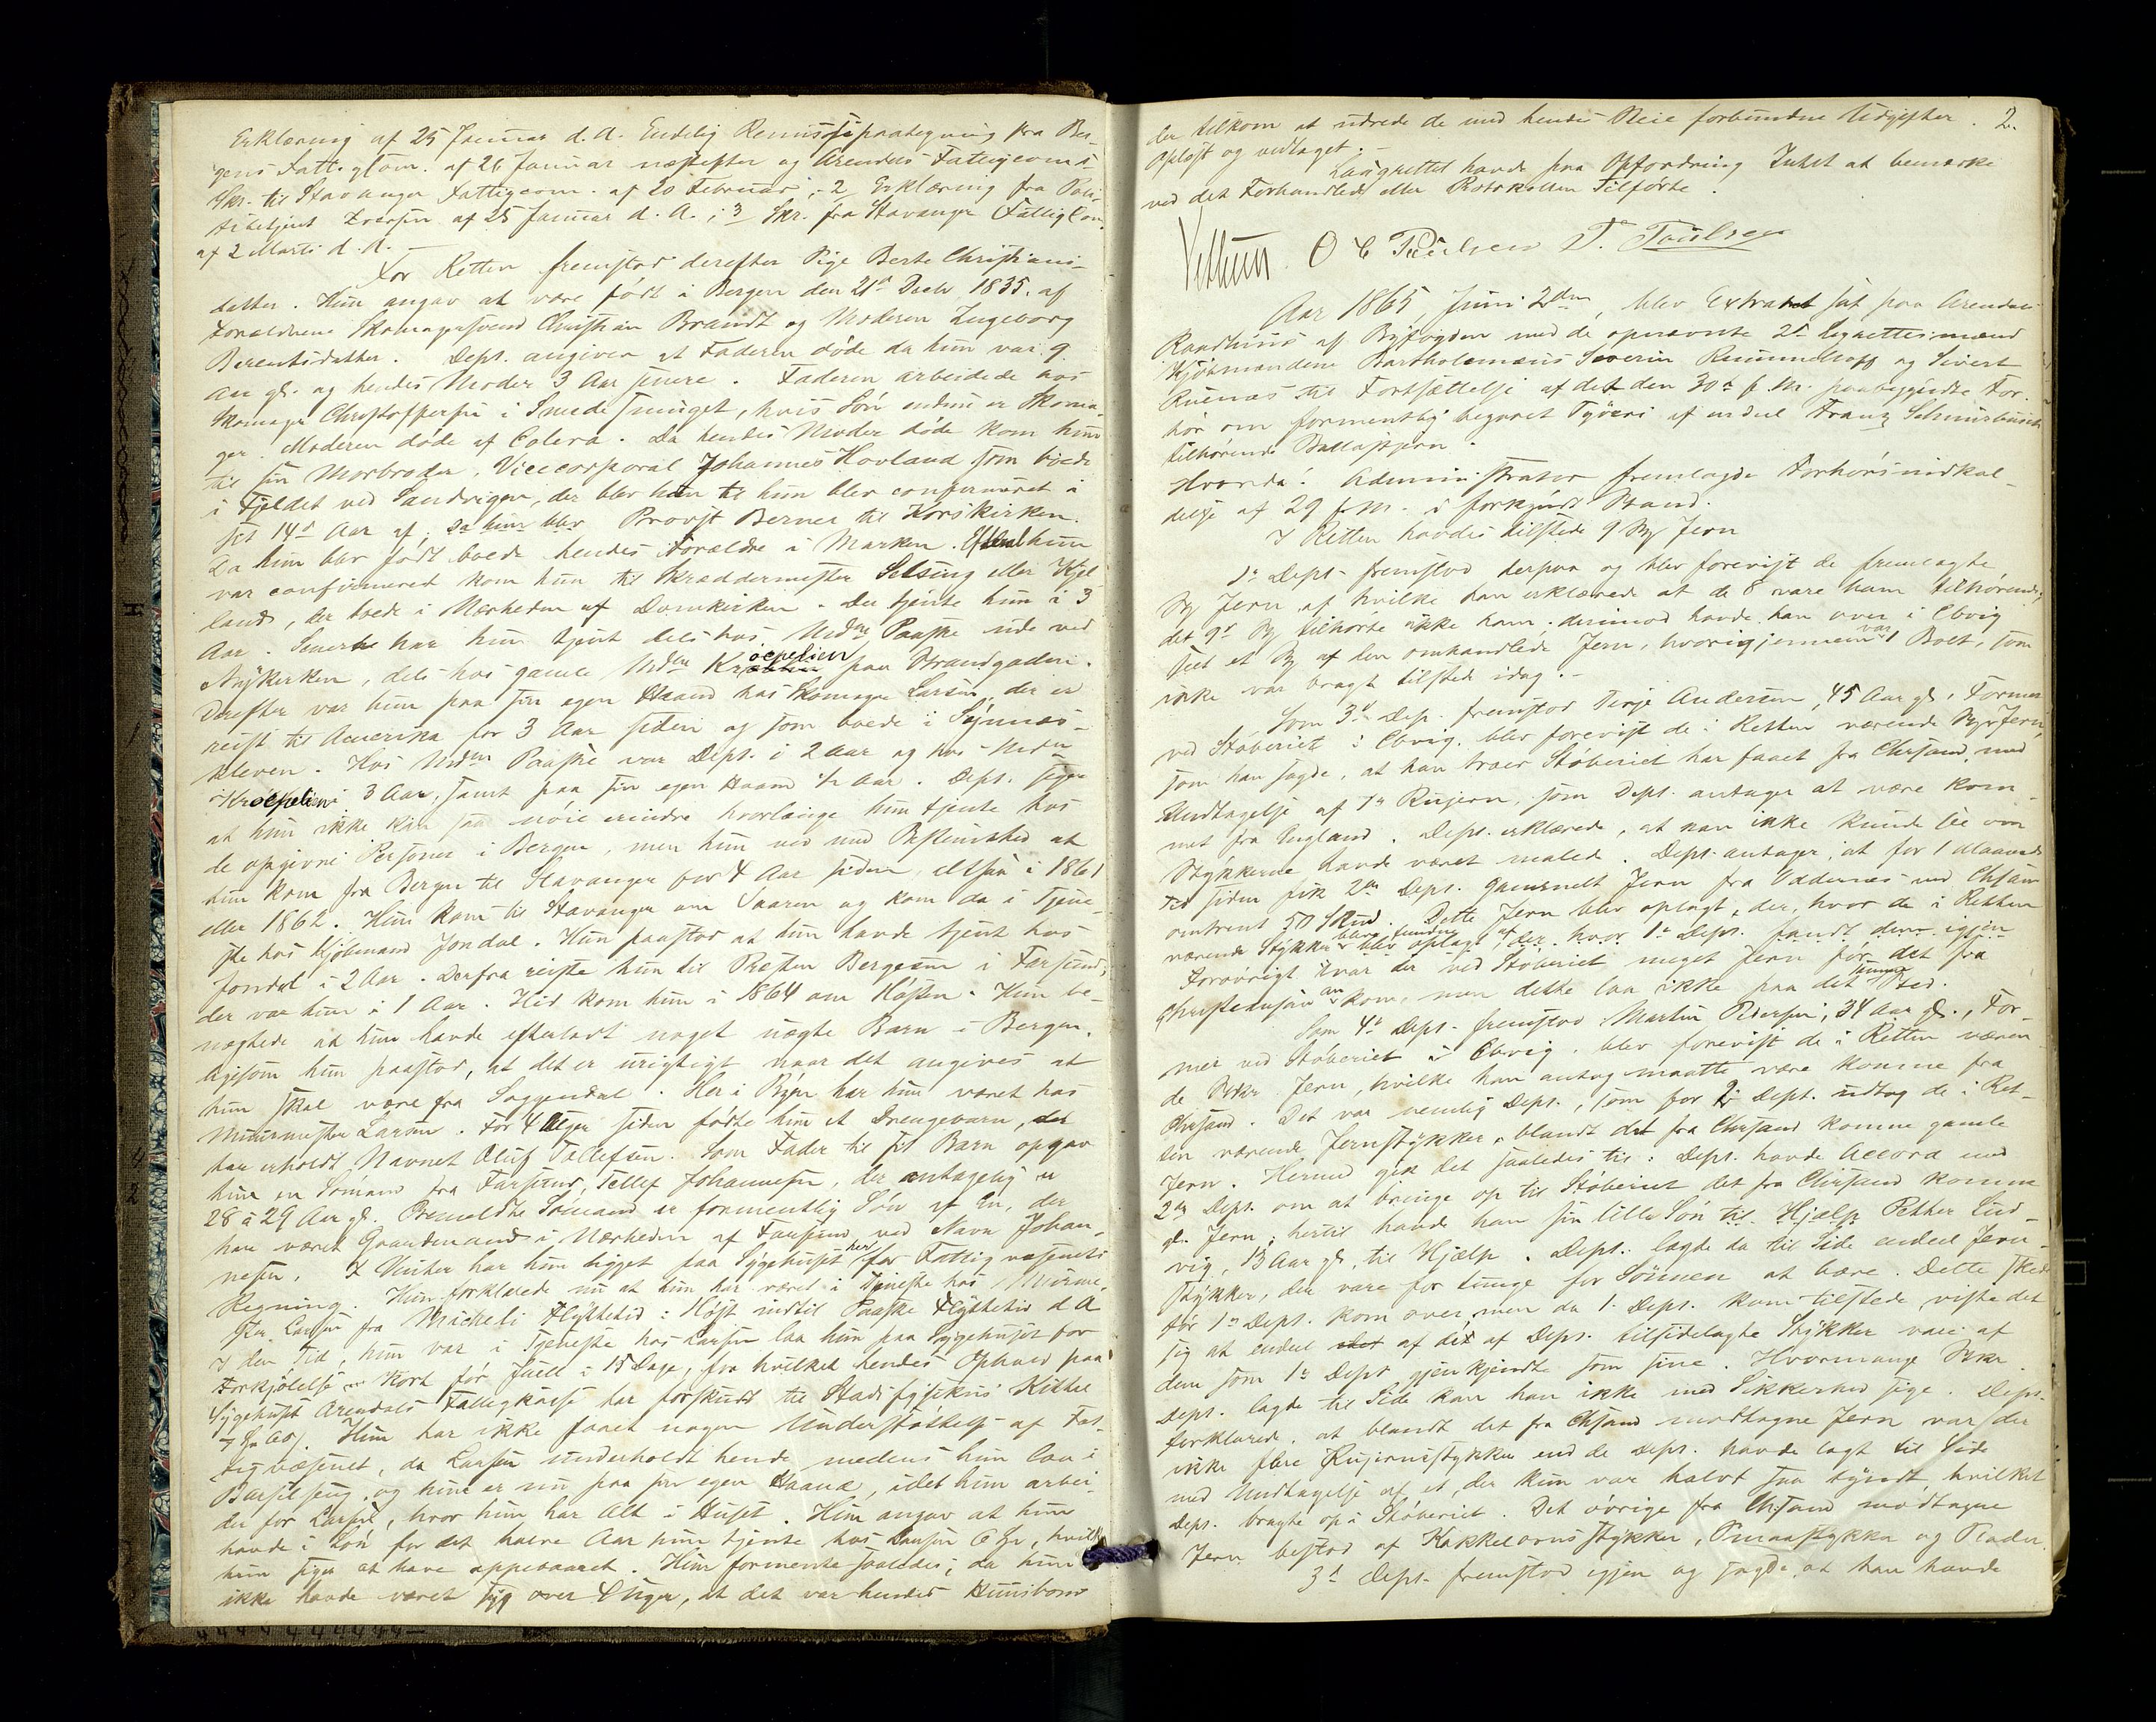 Erklæring af 25 Januar d. A. Endelig Remissepaategning fra Ber-
gens Fattigcom. af 26 Januar næstefter og Arendals Fattigcoms
Skr. til Stavanger Fattigcom. af 20 Februar; 2, Erklæring fra Poli-
tibetjent Iversen af 25 Januar d. A.; 3 Skr. fra Stavanger FattigCom.
af 2 Marts d. A. —
For Retten fremstod derefter Pige Berte Christians-
datter. Hun angav at være født i Bergen den 21de Decbr 1835. af
Forældrene Skomagersvend Christian Brandt og Moderen Ingeborg
Berentsdatter. Dept. angiver at Faderen døde da hun var 9
Aar gl. og hendes Moder 3 Aar senere. Faderen arbeidede hos
Skomager Christoffersen i Smedesmuget, hvis Søn endnu er Skoma-
ger. Moderen døde af Colera. Da hendes Moder døde kom hun
til sin Morbroder, Vicecorporal Johannes Hovland som boede
i Fjeldet ved Sandvigen, der blev hun til hun blev confirmeret i
sit 14de Aar af Provst Berner til Korskirken.
Da hun blev født boede hendes Forældre i Marken. Efterat hun
var confirmeret kom hun til Skræddermester Selsing eller Kjel-
land, der boede i Nærheden af Domkirken. Der tjente hun i 3
Aar. Senere har hun tjent dels hos Madme Paaske ude ved
Nykirken, dels hos gamle Mdme Kroepelien paa Strandgaden.
Derefter var hun paa sin egen Haand hos Skomager Larsen, der er
reist til Amerika for 3 Aar siden og som boede i Sydnæs-
kleven. Hos Mdme Paaske var Dept. i 2 Aar og hos Mdme
Kroepelien i 3 Aar, samt paa sin egen Haand ½ Aar. Dept. siger
at hun ikke kan saa nøie erindre hvorlænge hun tjente hos
de opgivne Personer i Bergen, men hun ved med Bestemthed at
hun kom fra Bergen til Stavanger for 4 Aar siden, altsaa i 1861
eller 1862. Hun kom til Stavanger om Vaaren og kom da i Tjene-
ste hos Kjøbmand Jondal. Hun paastod at hun havde tjent hos
Jondal i 2 Aar. Derfra reiste hun til Præsten Bergesen i Farsund,
der var hun i 1 Aar. Hid kom hun i 1864 om Høsten. Hun be-
nægtede at hun havde efterladt noget uægte Barn i Bergen,
ligesom hun paastod, at det er urigtigt naar det angives at
hun skal være fra Soggendal. Her i Byen har hun været hos
Muurmester Larsen. For 4 Uger siden fødte hun et Drengebarn, der
har erholdt Navnet Oluf Tellefsen. Som Fader til sit Barn opgav
hun en Sømand fra Farsund, Tellef Johannesen, der antagelig er
28 à 29 Aar gl. Bemeldte Sømand er formentlig Søn af En, der
har været Gaardmand i Nærheden af Farsund ved Navn Johan-
nesen. I Vinter har hun ligget paa Sygehuset her for Fattigvæsenets
Regning. Hun forklarede nu at hun har været i Tjeneste hos Murme-
ster Larsen fra Micheli Flyttetid i Høst indtil Paaske Flyttetid d. A.
I den Tid, hun var i Tjeneste hos Larsen laa hun paa Sygehuset for
Forkjølelse kort før Juul i 15 Dage, for hvilket hendes Ophold paa
Sygehuset Arendals Fattigkasse har forskudt til Stadsfysikus Kittel
Hun har ikke faaet nogen Understøttelse af Fat-
tigvæsenet, da Larsen underholdt hende medens hun laa i
Barselseng, og hun er nu paa sin egen Haand, idet hun arbei-
der for Larsen, hvor hun har Alt i Huset. Hun angav at hun
havde i Løn for det halve Aar hun tjente hos Larsen 6 Spd, hvilke
hun siger at have oppebaaret. Hun formente saaledes, da hun
ikke havde været syg over 4 Uger, at det var hendes Huusbond
2.
der tilkom at udrede de med hendes Pleie forbundne Udgifter.
Oplæst og vedtaget. —
Laugrettet havde paa Opfordring Intet at bemærke
ved det Forhandlede eller Protokollen Tilførte.
O C Paulsen T. Paulsen
Aar 1865, Juni 2den, blev Extraret sat paa Arendals
Raadhuus af Byfogden med de opnævnte 2de Lagrettesmænd
Kjøbmændene Bartholomæus Severin Rummelhoff og Sivert
Ruenæs til Fortsættelse af det den 30te f. M. paabegyndte For-
hør om formentlig begaaet Tyveri af endel Franz Schnirbusch
tilhørende Ballastjern.
Hvorda: Administrator fremlagde Forhørsindkal-
delse af 29 f. M. i forkyndt Stand.
I Retten havdes tilstede 9 St. Jern
1ste Dept. fremstod derpaa og blev forevist de fremlagte
St. Jern, af hvilke han erklærede at de 8 vare ham tilhørende;
det 9de St. tilhørte ikke ham, derimod havde han over i Ebvig
seet et St. af den omhandlede Jern, hvorigjennem var 1 Bolt, som
ikke var bragt tilstede idag. —
Som 3de Dep. fremstod Terje Andersen, 45 Aar gl., Former
ved Støberiet i Ebvig, blev forevist de i Retten værende St. Jern,
som han sagde, at han troer Støberiet har faaet fra Chrsand, med
Undtagelse af 1 St. Rujern, som Dept. antager at være kom-
met fra England. Dept. erklærede, at han ikke kunde see om
Stykkerne havde været malede. Dept. antager, at for 1 Maaneds
Tid siden fik 2den Dept. gammelt Jern fra Oddernes ved Chrsand
omtrent 50 Skpd. Dette Jern blev oplagt, der, hvor de i Retten
værende Stykker blev fundne af 1ste Dept.
Forøvrigt var der ved Støberiet meget Jern før det fra
Christianssand ankom, men dette laa ikke paa det samme Sted.
Som 4de Dept. fremstod Martin Pedersen, 34 Aar gl., For-
mer ved Støberiet i Ebvig, blev forevist de i Retten væren-
de Stkr. Jern, hvilke han antog maatte være komne fra
Chrsand. Det var nemlig Dept., som for 2. Dept. udtog de i Ret-
ten værende Jernstykker, blandt det fra Chrsand komne gamle
Jern. Hermed gik det saaledes til: Dept. havde Accord med
2den Dept. om at bringe op til Støberiet det fra Chrsand komne
gl. Jern; hertil havde han sin lille Søn til Hjælp Petter Lud-
vig, 13 Aar gl., til Hjælp. Dept. lagde da til Side endeel Jern-
stykker, der vare for tunge for Sønnen at bære. Dette skede
før 1ste Dept. kom over, men da 1. Dept. kom tilstede, viste det
sig at endeel af de af Dept. tilsidelagte Stykker vare af
dem som 1ste Dept. gjenkjendte som sine. Hvormange Stkr.
Dept. lagde til Side kan han ikke med Sikkerhed sige. Dept.
forklarede, at blandt det fra Chrsand modtagne Jern var der
ikke flere Rujernsstykker end de Dept. havde lagt til Side
med Undtagelse af et, der kun var halvt saa tyndt, hvilket
Dept. bragte op i Støberiet. Det øvrige fra Chrsand modtagne
Jern bestod af Kakkelovnsstykker, Smaastykker og Plader.
3de Dept. fremstod igjen og sagde, at han havde